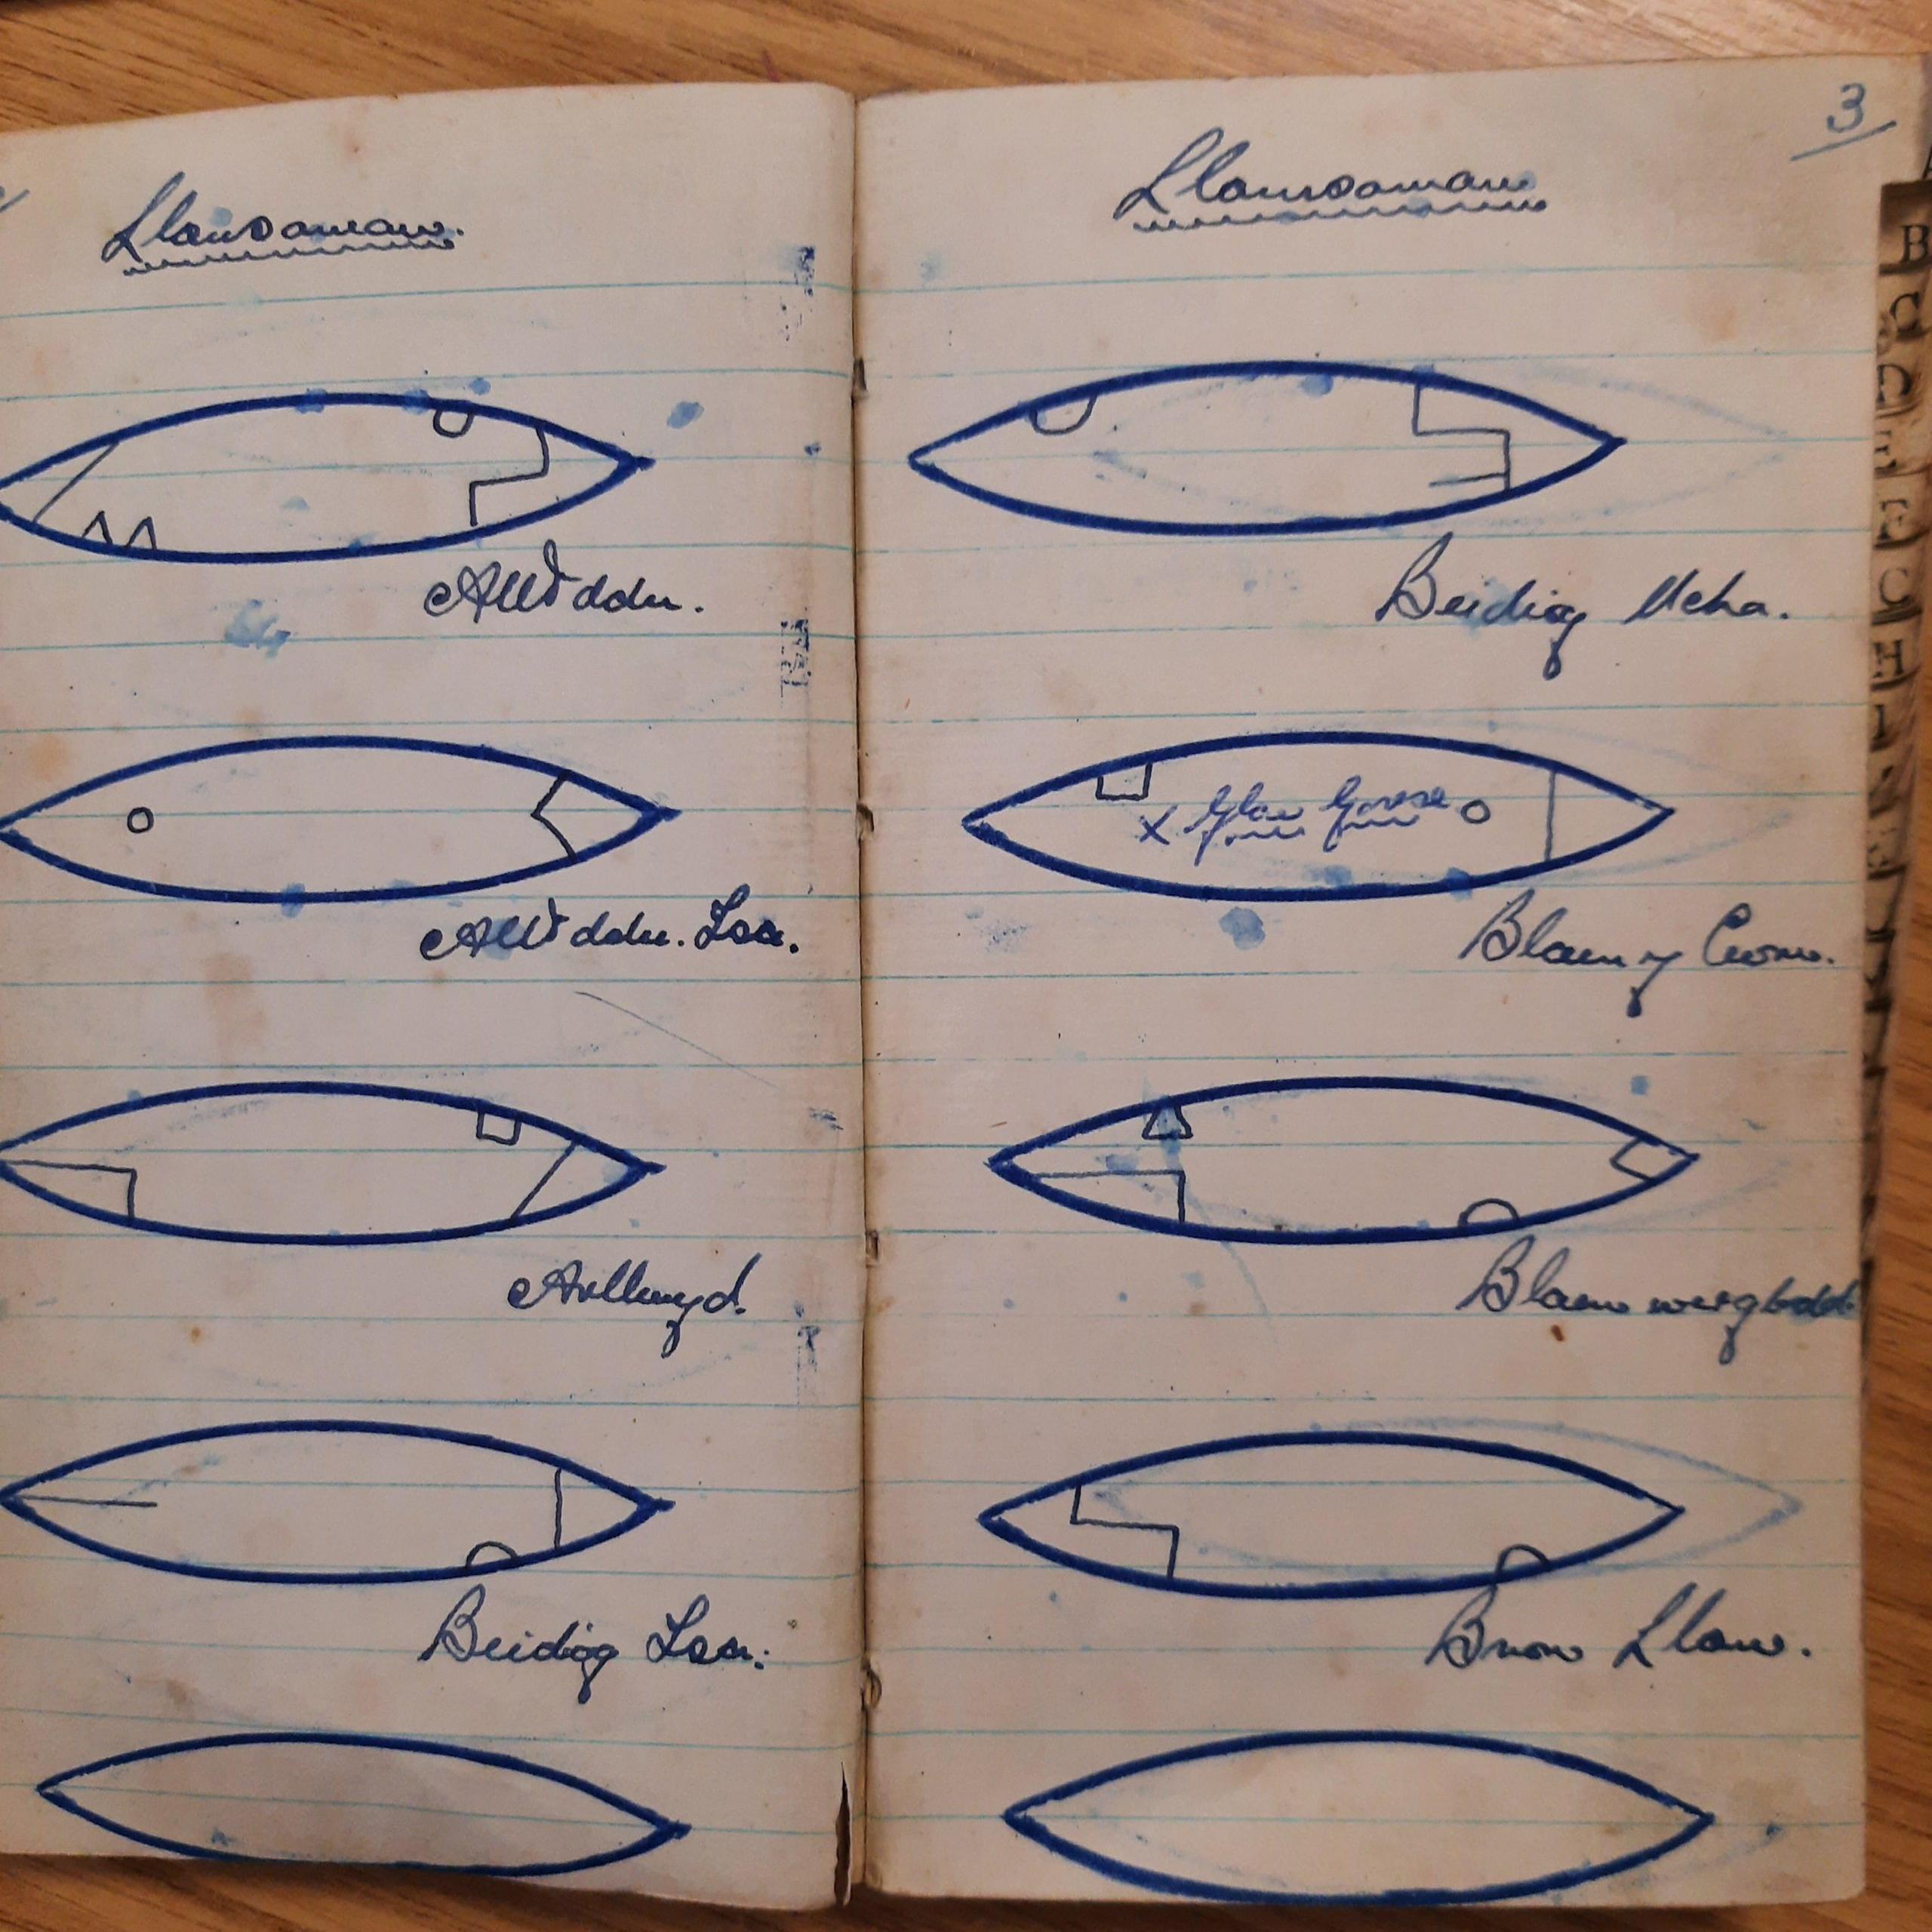 Llansawan.
Alltddu.
Alltddu. Isa.
Arllwyd.
Beidiog Isa.
3
Llansawan
Beidiog Ucha.
x Glan Gorse
Blaen y Cwm.
Bron Llan.
B
C
D
E
F
H
I